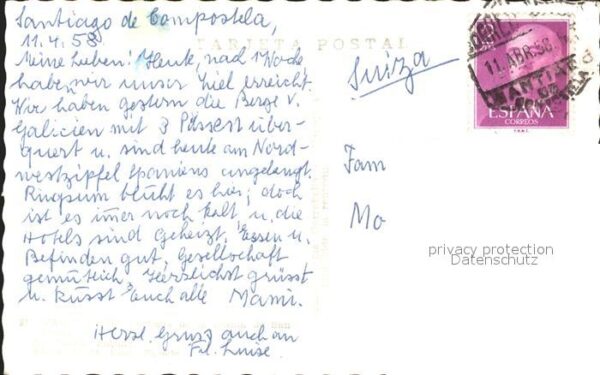 Santiago de Compostela,
11.4.58
TARJETA POSTAL
Meine Lieben! Heute, nach 1 Woche
haben wir unser Ziel erreicht.
Wir haben gestern die Berge v.
Galicien mit 3 Pässen über-
quert u. sind heute am Nord-
westzipfel Spaniens angelangt.
Ringsum blüht es hier; doch
ist es imer noch kalt u. die
Hotels sind geheizt. Essen u.
Befinden gut, Gesellschaft
gemütlich. Herzlichst grüsst
u. küsst Euch alle Mami.
Herzl. Gruss auch an
Frl. Luise.
Suiza
Fam
Mo
11 ABR. 58
SANTIAGO
ESPAÑA
CORREOS
privacy protection
Datenschutz